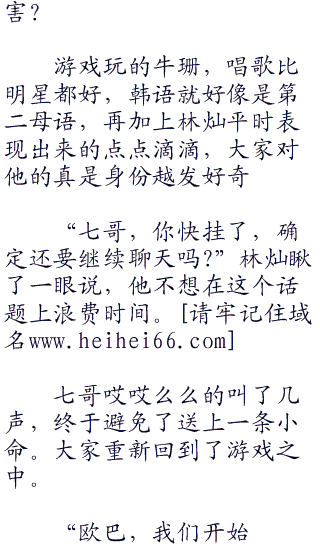 害？
游戏玩的牛珊，唱歌比
明星都好，韩语就好像是第
二母语，再加上林灿平时表
现出来的点点滴滴，大家对
他的真是身份越发好奇
“七哥，你快挂了，确
定还要继续聊天吗？”林灿瞅
了一眼说，他不想在这个话
题上浪费时间。[请牢记住域
名www.heihei66.com]
七哥哎哎么么的叫了几
声，终于避免了送上一条小
命。大家重新回到了游戏之
中。
“欧巴，我们开始